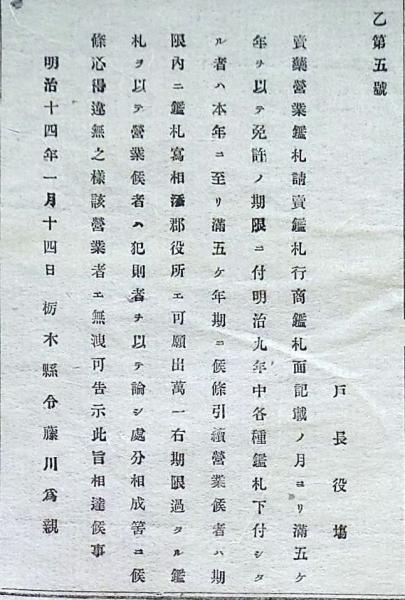 乙第五號
戸長役塲
賣藥營業鑑札請賣鑑札行商鑑札面記載ノ月ヨリ滿五ケ
年ヲ以テ免許ノ期限ニ付明治九年中各種鑑札下付シタ
ル者ハ本年ニ至リ滿五ケ年期ニ候條引續營業候者ハ期
限内ニ鑑札寫相添郡役所エ可願出萬一右期限過タル鑑
札ヲ以テ營業候者ハ犯則者ヲ以テ論シ處分相成筈ニ候
條心得違無之樣該營業者エ無洩可告示此旨相達候事
明治十四年一月十四日 栃木縣令藤川爲親